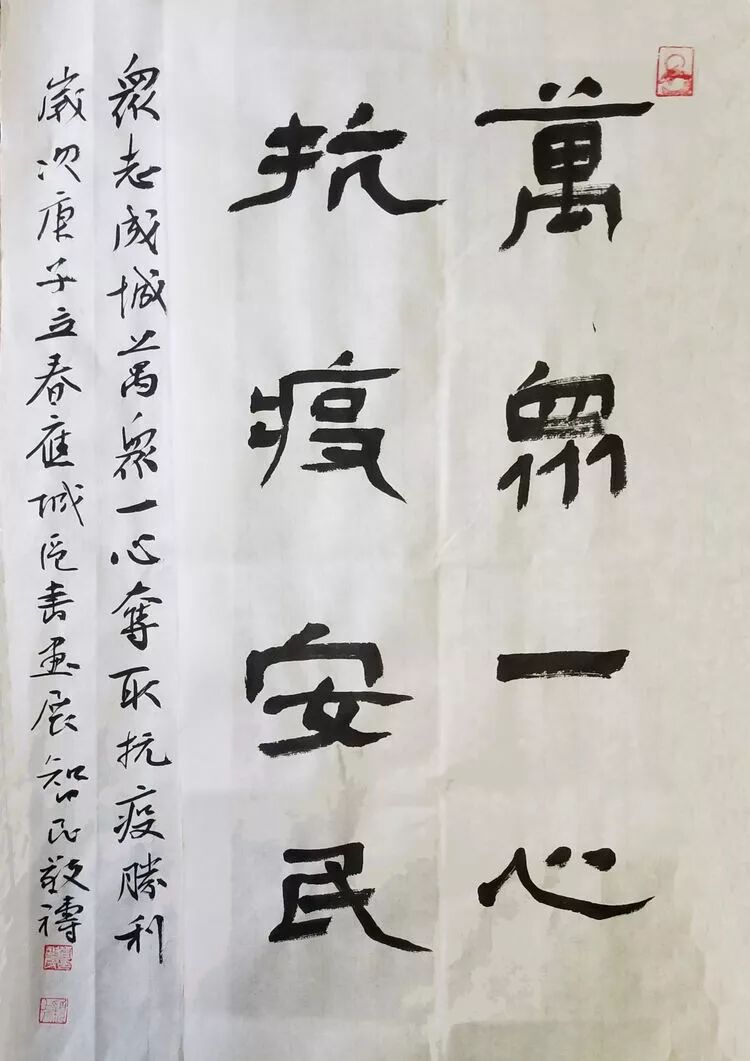 萬眾一心
抗疫安民
眾志成城萬眾一心奪取抗疫勝利
歲次庚子立春應城區書畫展智民敬禱